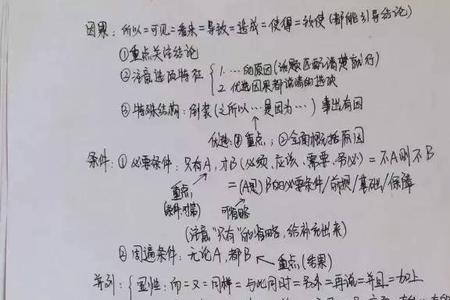 因果：所以=可见=看来=导致=造成=使得=致使（都能引导结论）
①重点关注结论
②注意选项特征 1. …的原因（给题匹配清楚就行）
2. 优选因果都说清的选项
③特殊结构：倒装（之所以…是因为…） 事出有因
优选④重点，；②全面概括原因
条件：①必要条件：只有A，才B（必须、应该、需要、务必）=不A则不B
重点（条件、对策） =（A是）B的必要条件/前提/基础/保障
可省略
（注意"只有"的省略，给补充出来）
②周遍条件：无论A，都B 重点（结果）
并列：显性：而=又=同样=与此同时=另外=再说=并且=加上